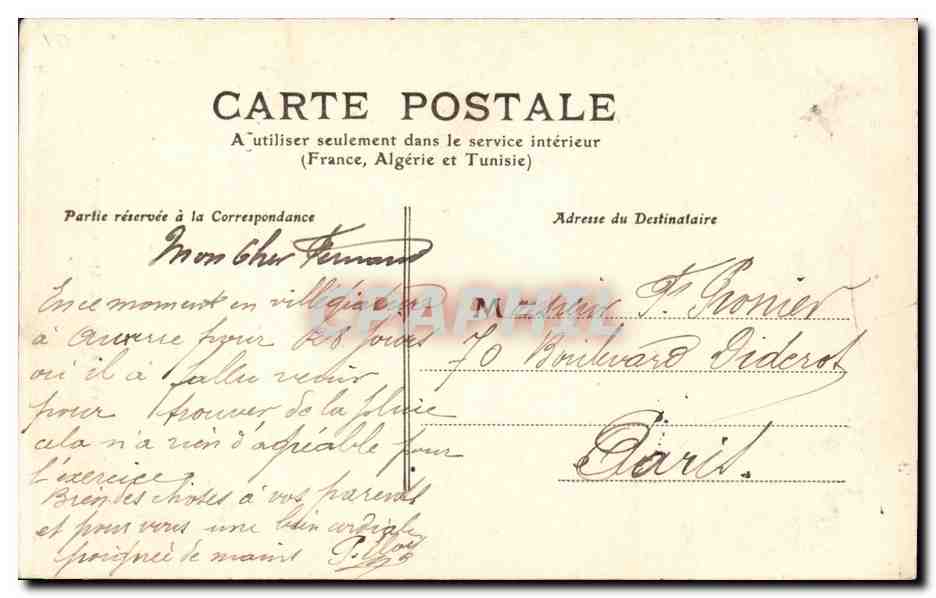 CARTE POSTALE
A utiliser seulement dans le service intérieur
(France, Algérie et Tunisie)
Partie réservée à la Correspondance
Mon Cher Fernand
En ce moment en villégiature
à pour jours
où il a fallu venir
pour trouver de la pluie
cela n'a rien d'agréable pour
l'exercice
Bien des choses à vos parents
et pour vous une bien cordiale
poignée de mains P.
Adresse du Destinataire
Monsieur F. Pronier
70 Boulevard Diderot
Paris.
CPAPHIL